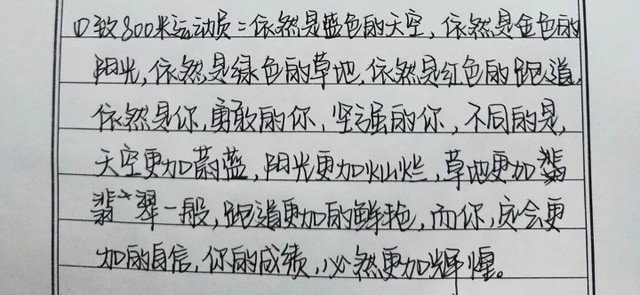 ①致800米运动员：依然是蓝色的天空，依然是金色的
阳光，依然是绿色的草地，依然是红色的跑道，
依然是你，勇敢的你，坚强的你，不同的是，
天空更加蔚蓝，阳光更加灿烂，草地更加
翡翠一般，跑道更加的鲜艳，而你，定会更
加的自信，你的成绩，必然更加辉煌。